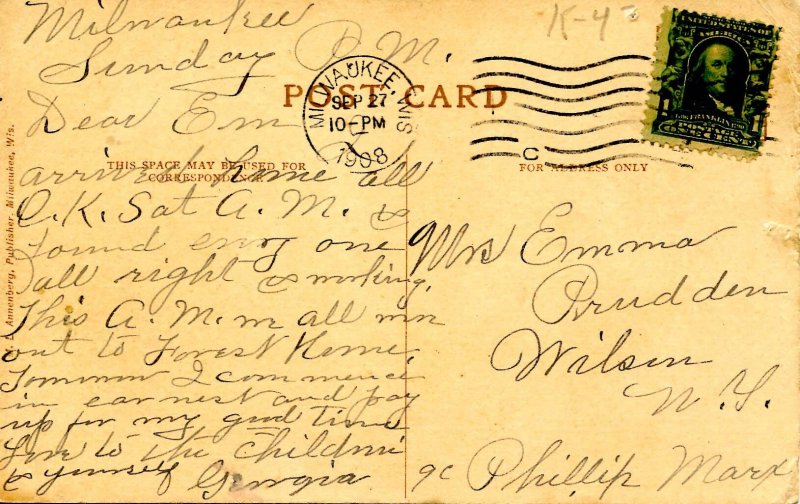 Milwaukee
Sunday P.M.
Dear Em
arrived home all
O.K. Sat A.M. &
found evry one
all right & working.
This A.M. we all run
out to Forest Home.
Tomorrow I commence
in earnest and pay
up for my good time
Love to the Children
& yourself Georgia
K-4
POST CARD
MILWAUKEE, WIS
SEP 27
10-PM
1908
C
THIS SPACE MAY BE USED FOR
CORRESPONDENCE
FOR ADDRESS ONLY
UNITED STATES OF
AMERICA
FRANKLIN
POSTAGE
ONE CENT
Annenberg, Publisher, Milwaukee, Wis.
Mrs Emma
Prudden
Wilson
N. Y.
℅ Phillip Marx